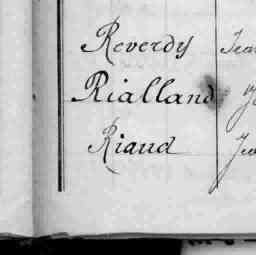 Reverdy
Rialland
Riaud